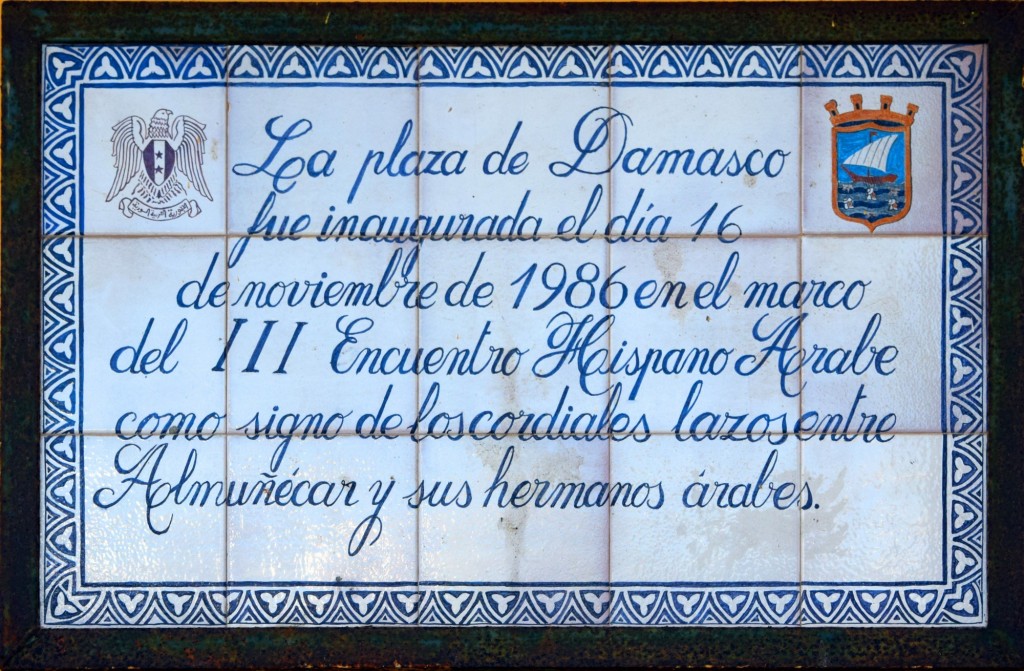 La plaza de Damasco
fue inaugurada el día 16
de noviembre de 1986 en el marco
del III Encuentro Hispano Arabe
como signo de los cordiales lazos entre
Almuñécar y sus hermanos árabes.
الجمهورية العربية السورية